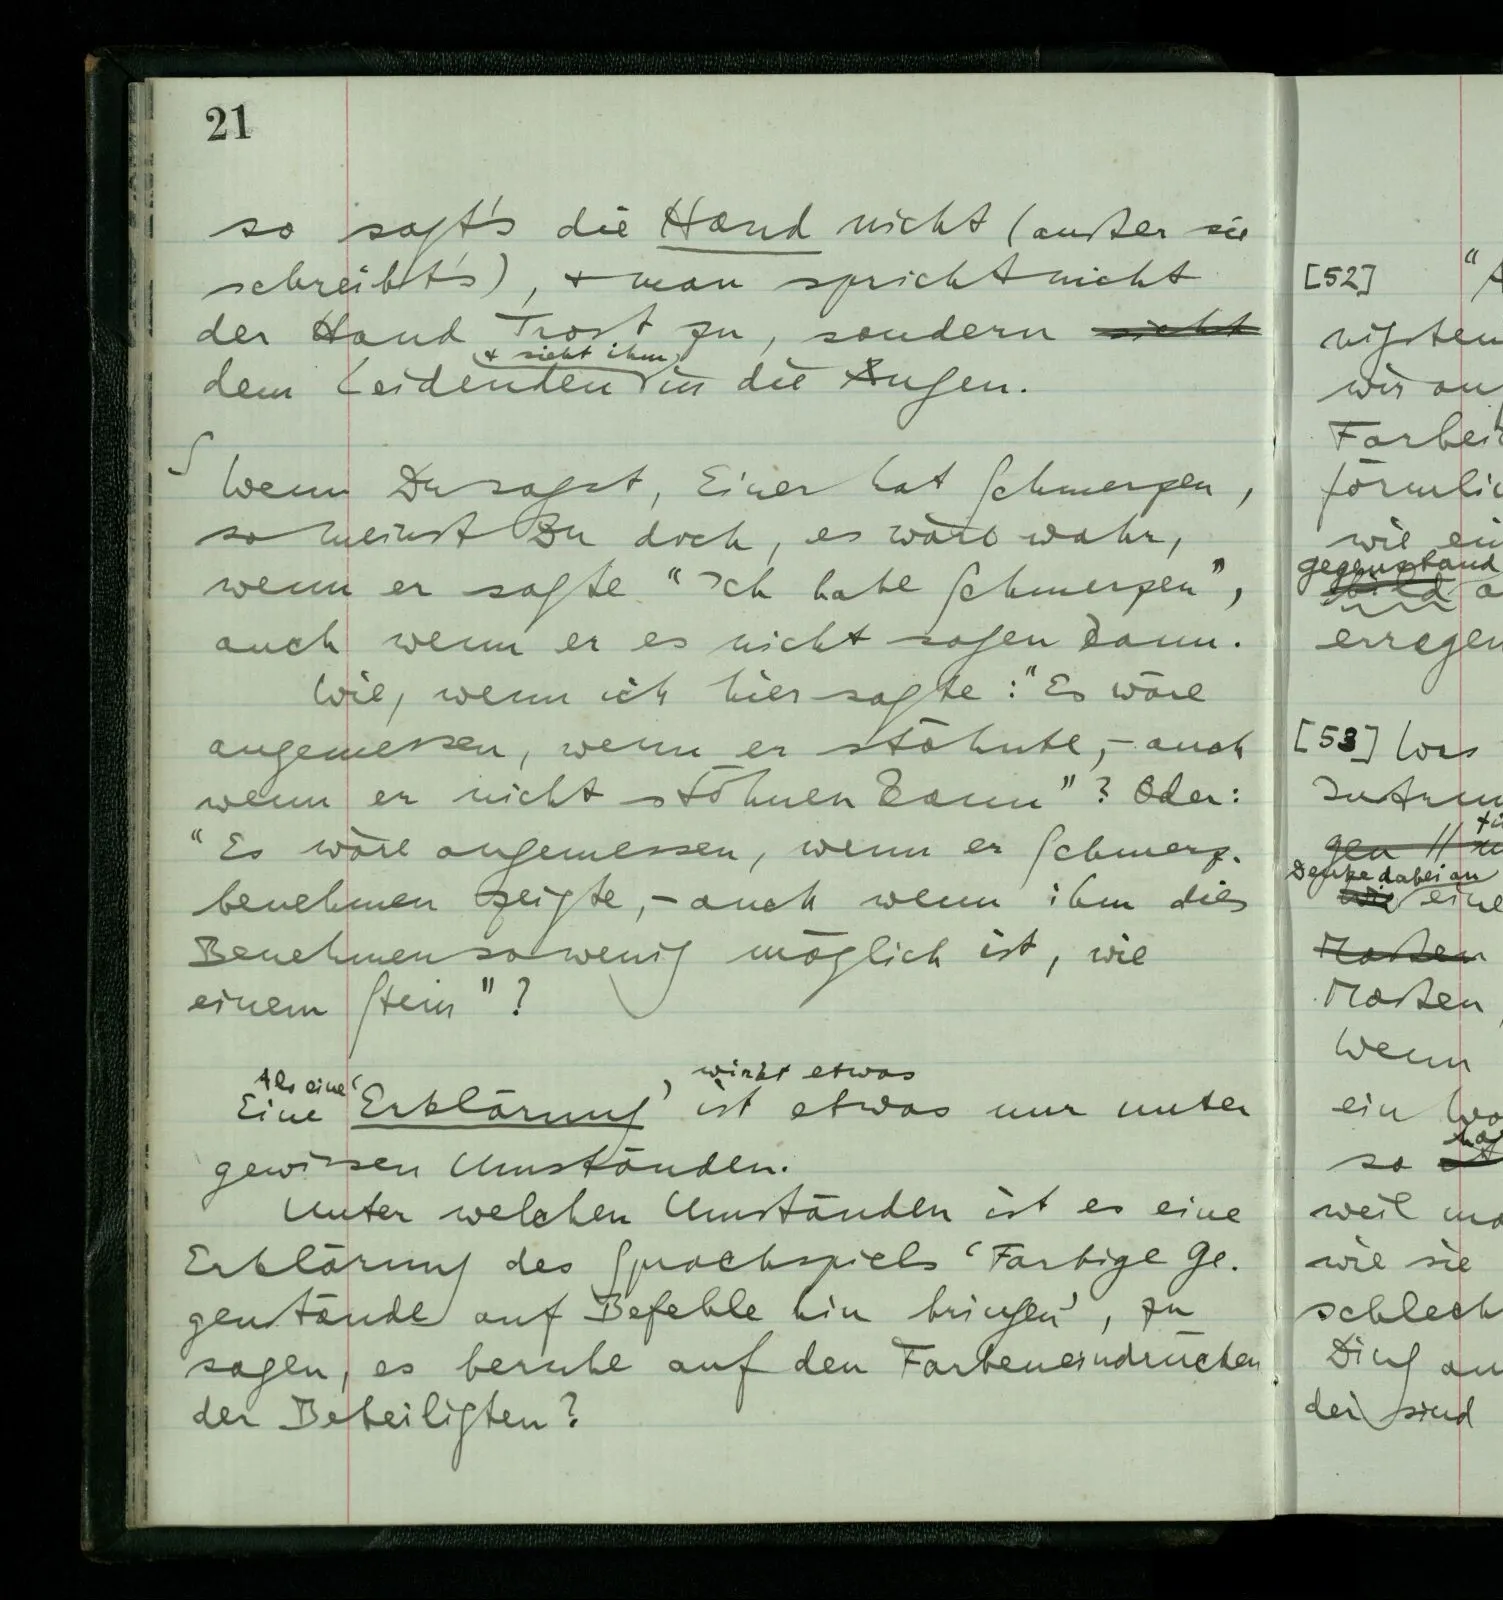 21
so sagt's die Hand nicht (außer sie
schreibt's), + man spricht nicht
der Hand Trost zu, sondern sieht
+ sieht ihm
dem Leidenden in die Augen.
∫
Wenn Du sagst, Einer hat Schmerzen,
so meinst Du doch, es wäre wahr,
wenn er sagte “Ich habe Schmerzen”,
auch wenn er es nicht sagen kann.
Wie, wenn ich hier sagte: “Es wäre
angemessen, wenn er stöhnte, – auch
wenn er nicht stöhnen kann”? Oder:
“Es wäre angemessen, wenn er Schmerz-
benehmen zeigte, – auch wenn ihm dies
Benehmen so wenig möglich ist, wie
einem Stein”?
Als eine wirkt etwas
Eine ‘Erklärung’ ist etwas nur unter
gewissen Umständen.
Unter welchen Umständen ist es eine
Erklärung des Sprachspiels ‘Farbige Ge-
genstände auf Befehle hin bringen’, zu
sagen, es beruhe auf den Farbeneindrücken
der Beteiligten?
[52] “A
nigsten
wir au
Farbei
förmlic
wie ein
gegenstand
bild a
erregen
[53] Was
Intrum
gen //
Denke dabei an
wie eine
Maßen
Maßen,
Wenn
ein Wo
so
weil ma
wie sie
schlech
Ding an
der sind